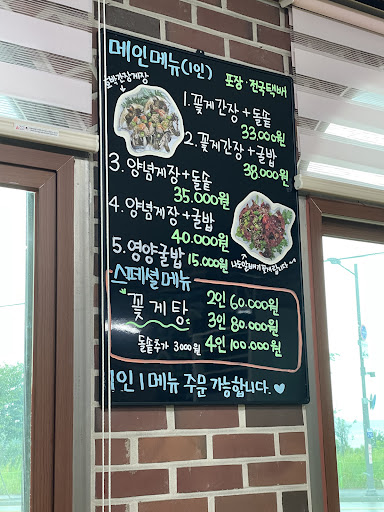 메인메뉴(1인)
포장·전국택배
1. 꽃게간장+돌솥
33,000원
2. 꽃게간장+굴밥
38,000원
3. 양념게장+돌솥
35,000원
4. 양념게장+굴밥
40,000원
5. 영양굴밥 15,000원
스페셜메뉴
"꽃게탕"
2인 60,000원
3인 80,000원
4인 100,000원
돌솥추가 3000원
1인 1메뉴 주문 가능합니다.